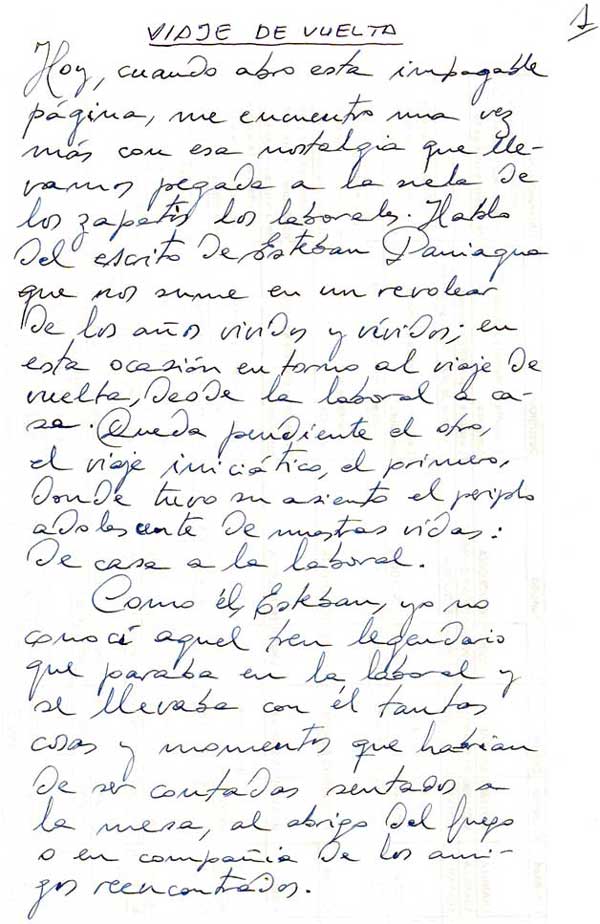 VIAJE DE VUELTA
1
Hoy, cuando abro esta impagable
página, me encuentro una vez
más con esa nostalgia que lle-
vamos pegada a la suela de
los zapatos los laborales. Hablo
del escrito de Esteban Paniagua
que nos sume en un revolear
de los años vividos y vívidos; en
esta ocasión en torno al viaje de
vuelta, desde la laboral a ca-
sa. Queda pendiente el otro,
el viaje iniciático, el primero,
donde tuvo su asiento el periplo
adolescente de nuestras vidas:
de casa a la laboral.
Como él, Esteban, yo no
conocí aquel tren legendario
que paraba en la laboral y
se llevaba con él tantas
cosas y momentos que habrían
de ser contadas sentados a
la mesa, al abrigo del fuego
o en compañía de los ami-
gos reencontrados.